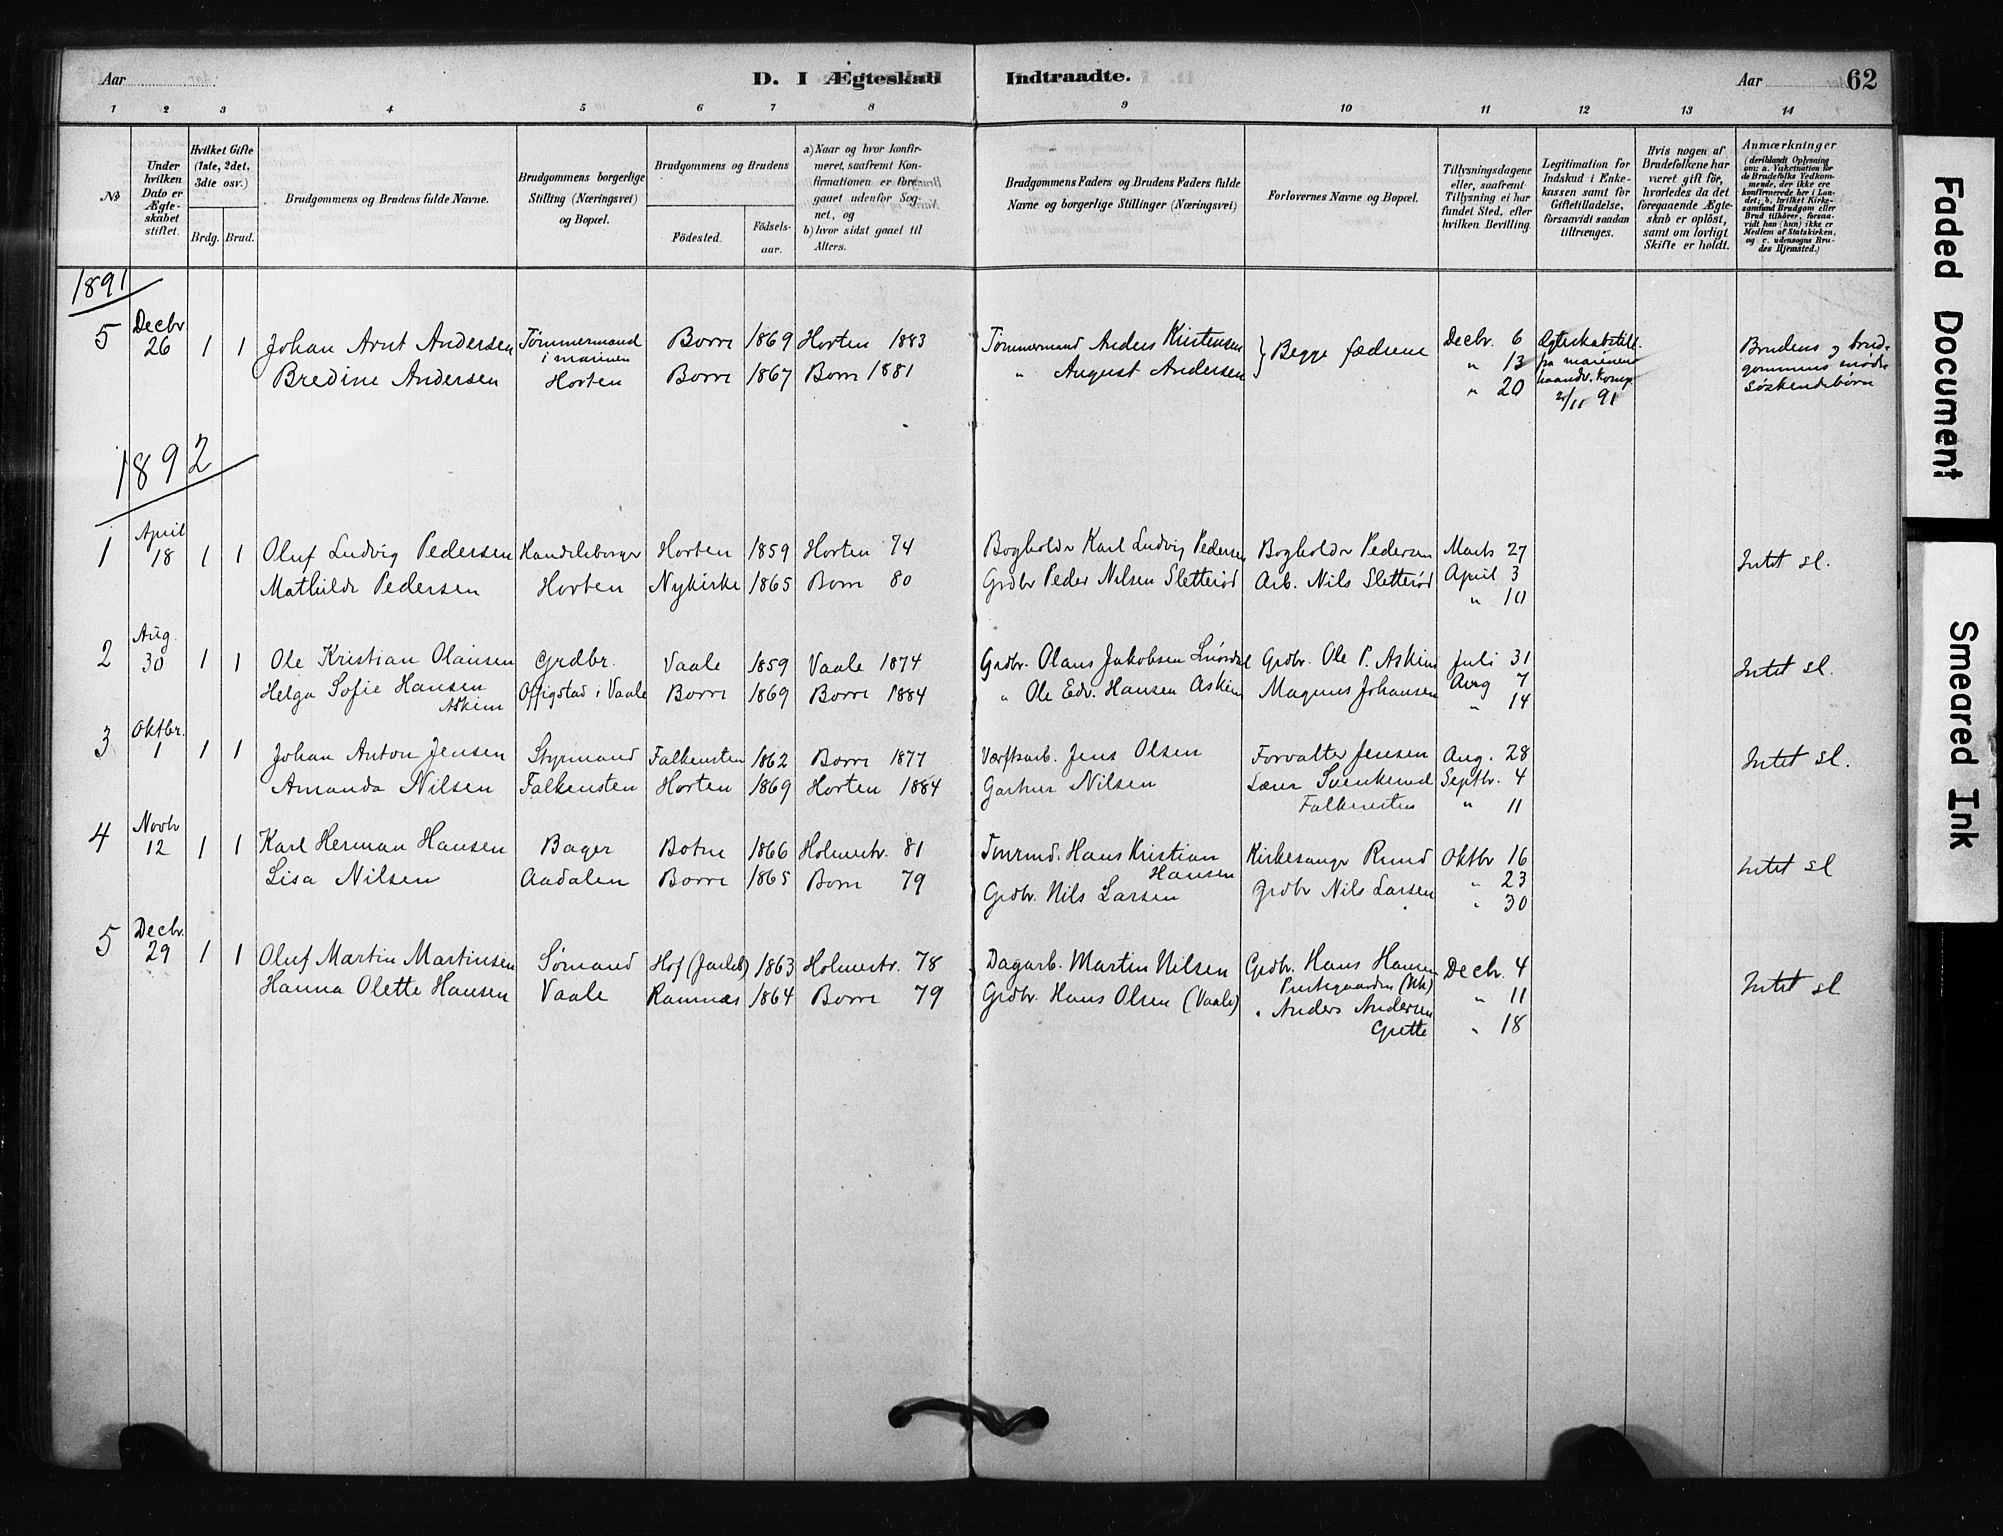 Aar
D. I Ægteskab
Indtraadte.
Aar
62
1 2 3 4 5 6 7 8 9 10 11 12 13 14
№
Under hvilken Dato er Ægteskabet stiftet.
Hvilket Gifte (1ste, 2det, 3die osv.)
Brdg. Brud.
Brudgommens og Brudens fulde Navne.
Brudgommens borgerlige Stilling (Næringsvei) og Bopæl.
Brudgommens og Brudens
Födested.
Födselsaar.
a) Naar og hvor konfirmeret, saafremt Konfirmationen er foregaaet udenfor Sognet, og
b) hvor sidst gaaet til Alters.
Brudgommens Faders og Brudens Faders fulde Navne og borgerlige Stillinger (Næringsvei)
Forlovernes Navne og Bopæl.
Tillysningsdagene eller, saafremt Tillysning ei har fundet Sted, efter hvilken Bevilling.
Legitimation for Indskud i Enkekassen samt for Giftetilladelse, forsaavidt saadan tiltrænges.
Hvis nogen af Brudefolkene har været gift för, hvorledes da det foregaaende Ægteskab er oplöst, samt om lovligt Skifte er holdt.
Anmærkninger
(deriblandt Oplysning om: a. Vakcination for de Brudefolks Vedkommende, der ikke ere konfirmerede her i Landet; b. hvilket Kirkesamfund Brudgom eller Brud tilhörer, forsaavidt han (hun) ikke er Medlem af Statskirken, og c. udensogns Brudes Hjemsted.)
1891
5 Decbr 26 1 1 Johan Arnt Andersen Tømmermand i marinen Borre 1869 Horten 1883 Tømmermand Anders Kristensen } Begge fædrene Decbr. 6 Ægteskabstill.
Bredine Andersen Horten Borre 1867 Borre 1881 " August Andersen " 13 fra marinens
" 20 haandv. komp.
21/11 91
Brudens og brudgommens mødre søskendebørn
1892
1 April 18 1 1 Oluf Ludvig Pedersen Handelsborger Horten 1859 Horten 74 Bogholder Karl Ludvig Pedersen Bogholder Pedersen Marts 27 Intet sl.
Mathilde Pedersen Horten Nykirke 1865 Borre 80 Grdbr Peder Nilsen Sletterød Arb. Nils Sletterød April 3
" 10
2 Aug. 30 1 1 Ole Kristian Olausen Grdbr. Vaale 1859 Vaale 1874 Grdbr. Olaus Jakobsen Grdbr. Ole P. Askim Juli 31 Intet sl.
Helga Sofie Hansen Askim i Vaale Borre 1869 Borre 1884 " Ole Edv. Hansen Askim Magnus Johansen Aug 7
" 14
3 Oktbr. 1 1 1 Johan Anton Jensen Styrmand Falkensten 1862 Borre 1877 Værftsarb. Jens Olsen Forvalter Jensen Aug. 28 Intet sl.
Amanda Nilsen Falkensten Horten 1869 Horten 1884 Gartner Nilsen Lærer Svenkerud Septbr. 4
Falkensten " 11
4 Novbr 12 1 1 Karl Herman Hansen Bager Botne 1866 Holmestr. 81 Hans Kristian Hansen Kirkesanger Ruud Oktbr 16 Intet sl
Lisa Nilsen Aadalen Borre 1865 Borre 79 Grdbr. Nils Larsen Grdbr Nils Larsen " 23
" 30
5 Decbr. 29 1 1 Oluf Martin Martinsen Sømand Hof (Jarlsb) 1863 Holmestr. 78 Dagarb. Martin Nilsen Grdbr. Hans Hansen Decbr. 4 Intet sl
Hanna Olette Hansen Vaale Ramnæs 1864 Borre 79 Grdbr. Hans Olsen (Vaale) Prestegaarden (Nk) " 11
" Anders Andersen
Grette " 18
Faded Document
Smeared Ink